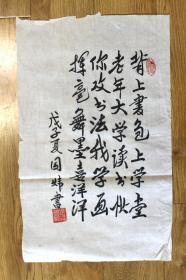 背上书包上学堂
老年大学读书忙
你攻书法我学画
挥毫舞墨喜洋洋
戊子夏 国 书